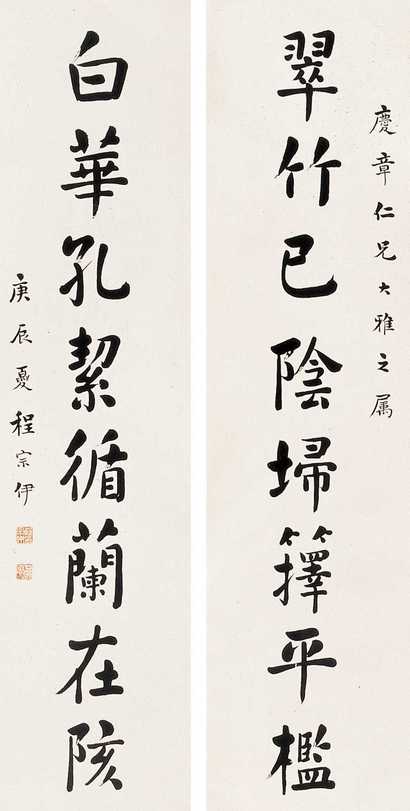 慶章仁兄大雅之属
翠竹已陰埽籜平檻
白華孔絜循蘭在陔
庚辰夏程宗伊